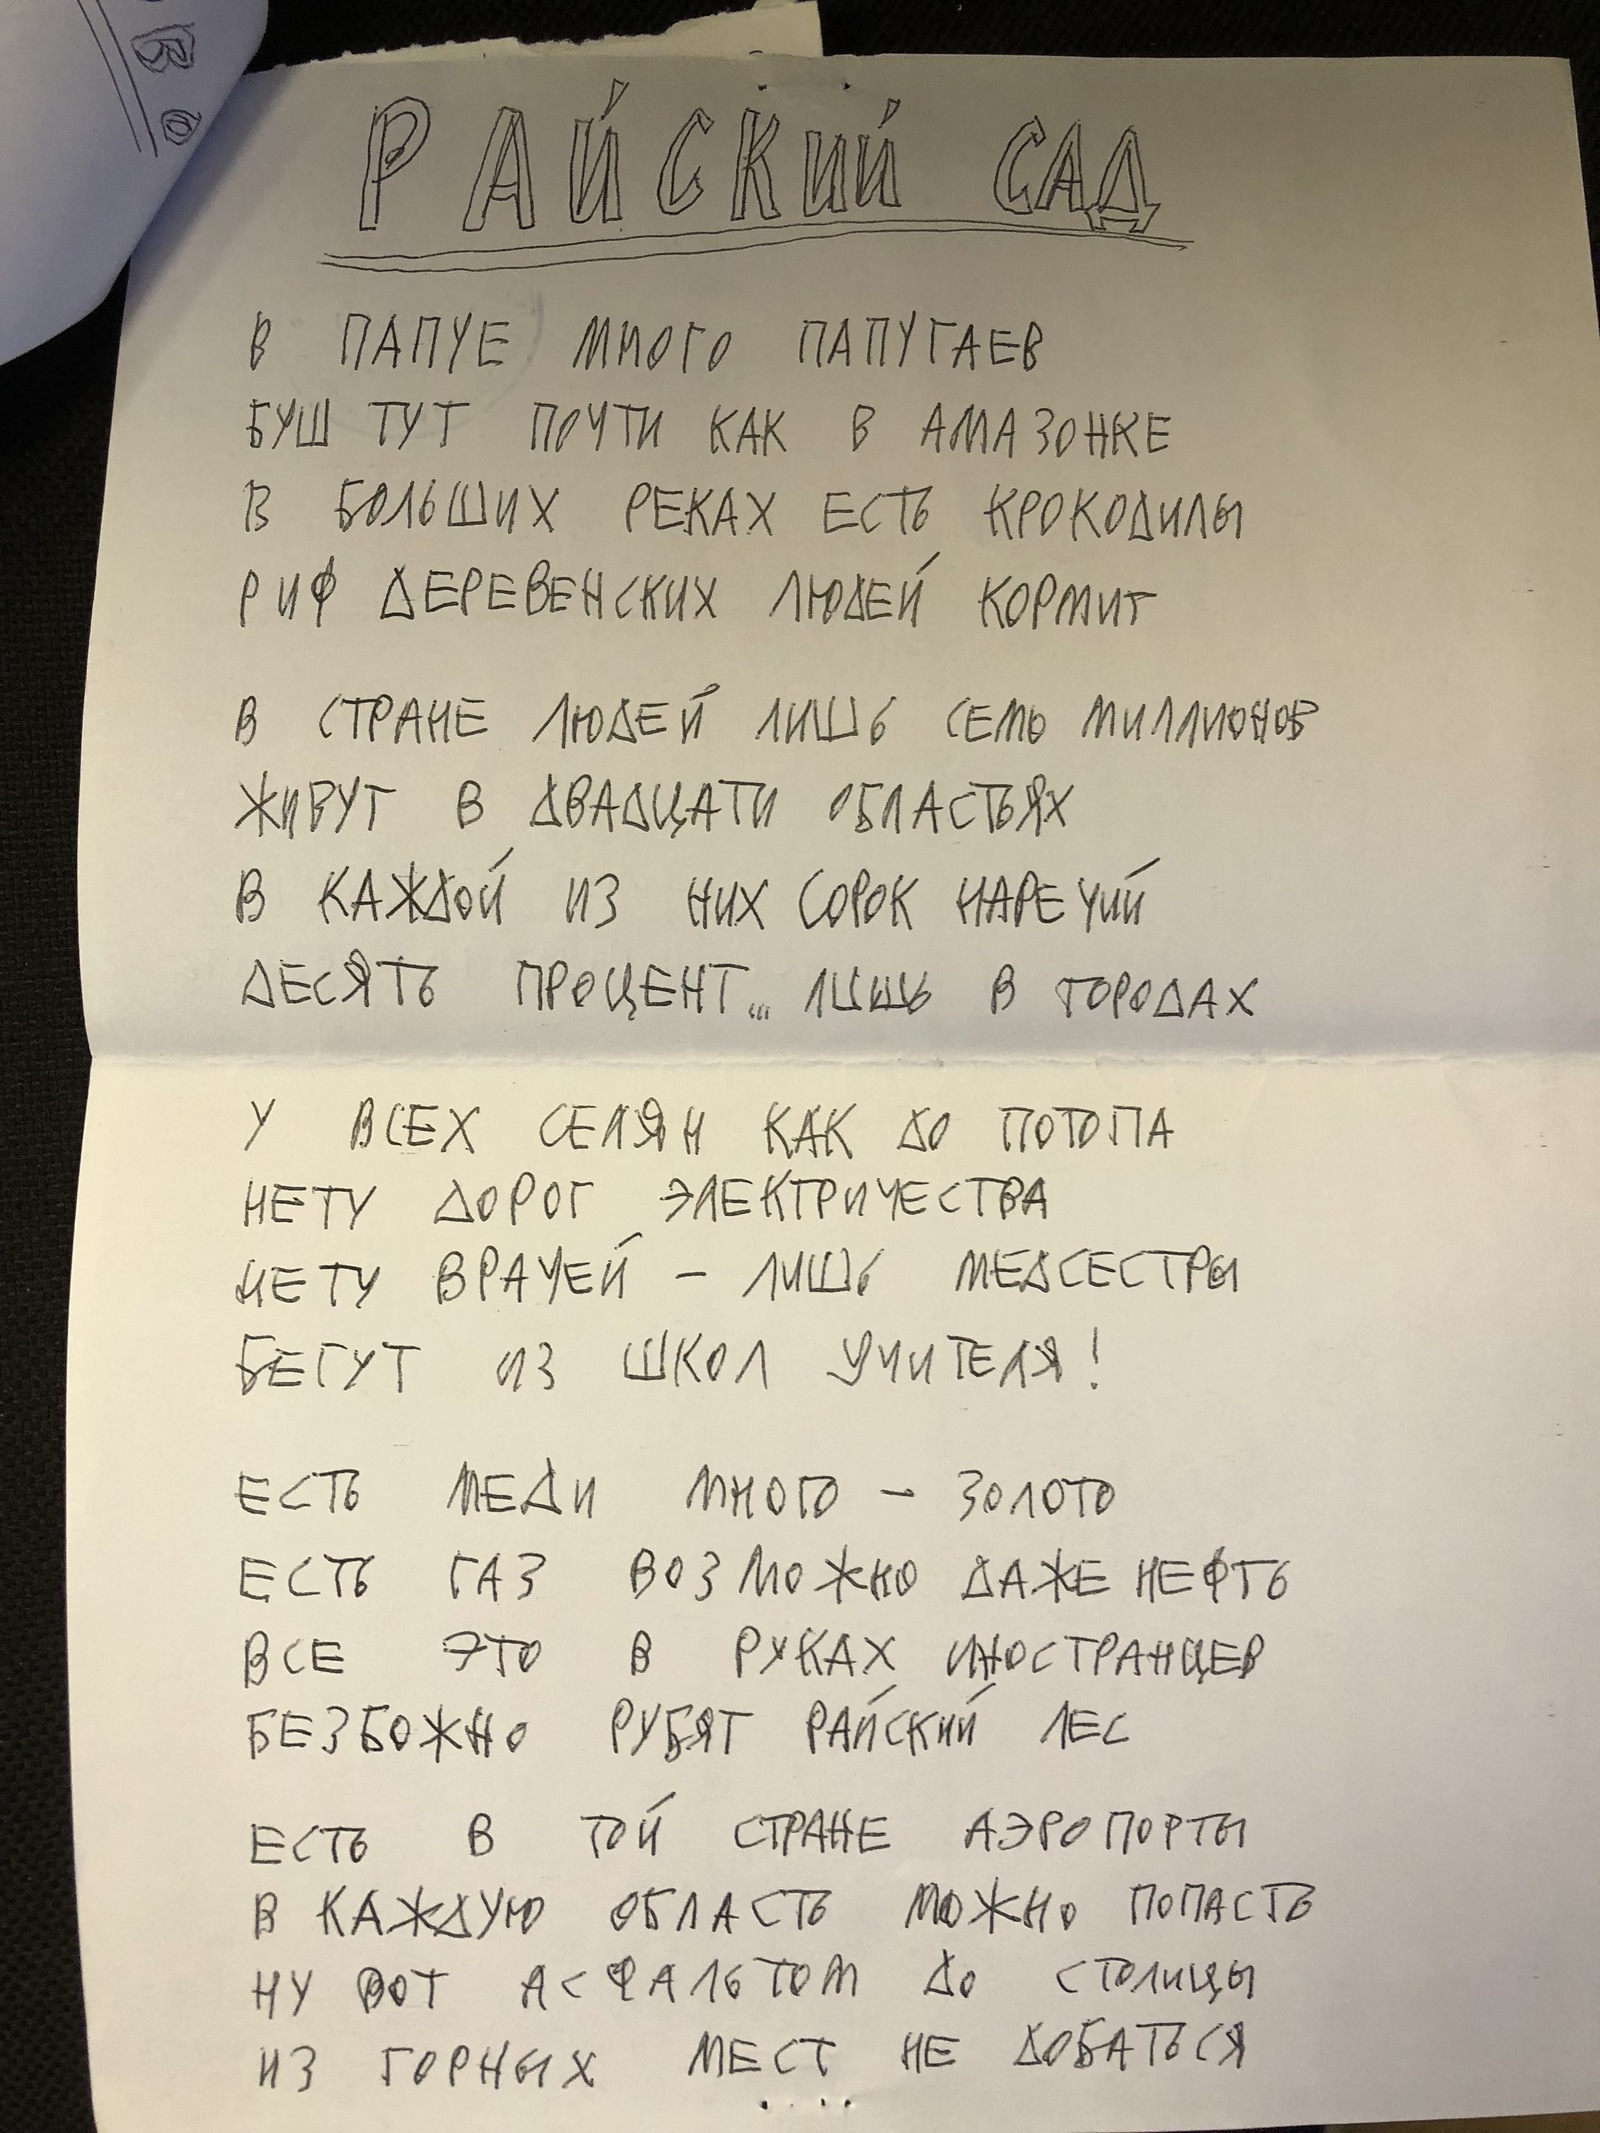 РАЙСКИЙ САД
В ПАПУЕ МНОГО ПАПУГАЕВ
БУШ ТУТ ПОЧТИ КАК В АМАЗОНКЕ
В БОЛЬШИХ РЕКАХ ЕСТЬ КРОКОДИЛЫ
РИФ ДЕРЕВЕНСКИХ ЛЮДЕЙ КОРМИТ
В СТРАНЕ ЛЮДЕЙ ЛИШЬ СЕМЬ МИЛЛИОНОВ
ЖИВУТ В ДВАДЦАТИ ОБЛАСТЬЯХ
В КАЖДОЙ ИЗ НИХ СОРОК НАРЕЧИЙ
ДЕСЯТЬ ПРОЦЕНТ... ЛИШЬ В ГОРОДАХ
У ВСЕХ СЕЛЯН КАК ДО ПОТОПА
НЕТУ ДОРОГ ЭЛЕКТРИЧЕСТВА
НЕТУ ВРАЧЕЙ - ЛИШЬ МЕДСЕСТРЫ
БЕГУТ ИЗ ШКОЛ УЧИТЕЛЯ!
ЕСТЬ МЕДИ МНОГО - ЗОЛОТО
ЕСТЬ ГАЗ ВОЗМОЖНО ДАЖЕ НЕФТЬ
ВСЕ ЭТО В РУКАХ ИНОСТРАНЦЕВ
БЕЗБОЖНО РУБЯТ РАЙСКИЙ ЛЕС
ЕСТЬ В ТОЙ СТРАНЕ АЭРОПОРТЫ
В КАЖДУЮ ОБЛАСТЬ МОЖНО ПОПАСТЬ
НУ ВОТ АСФАЛЬТОМ ДО СТОЛИЦЫ
ИЗ ГОРНЫХ МЕСТ НЕ ДОБАТЬСЯ